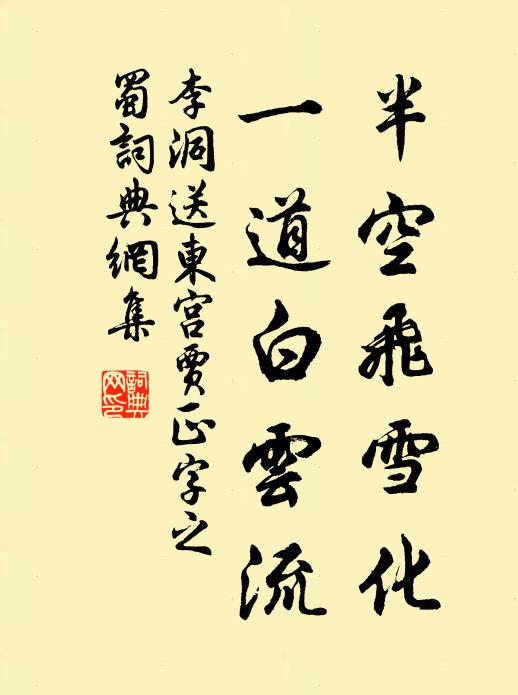 半空飛雪化
一道白雲流
李洞送東宮賈正字之
蜀詞典網集
詞典
网印